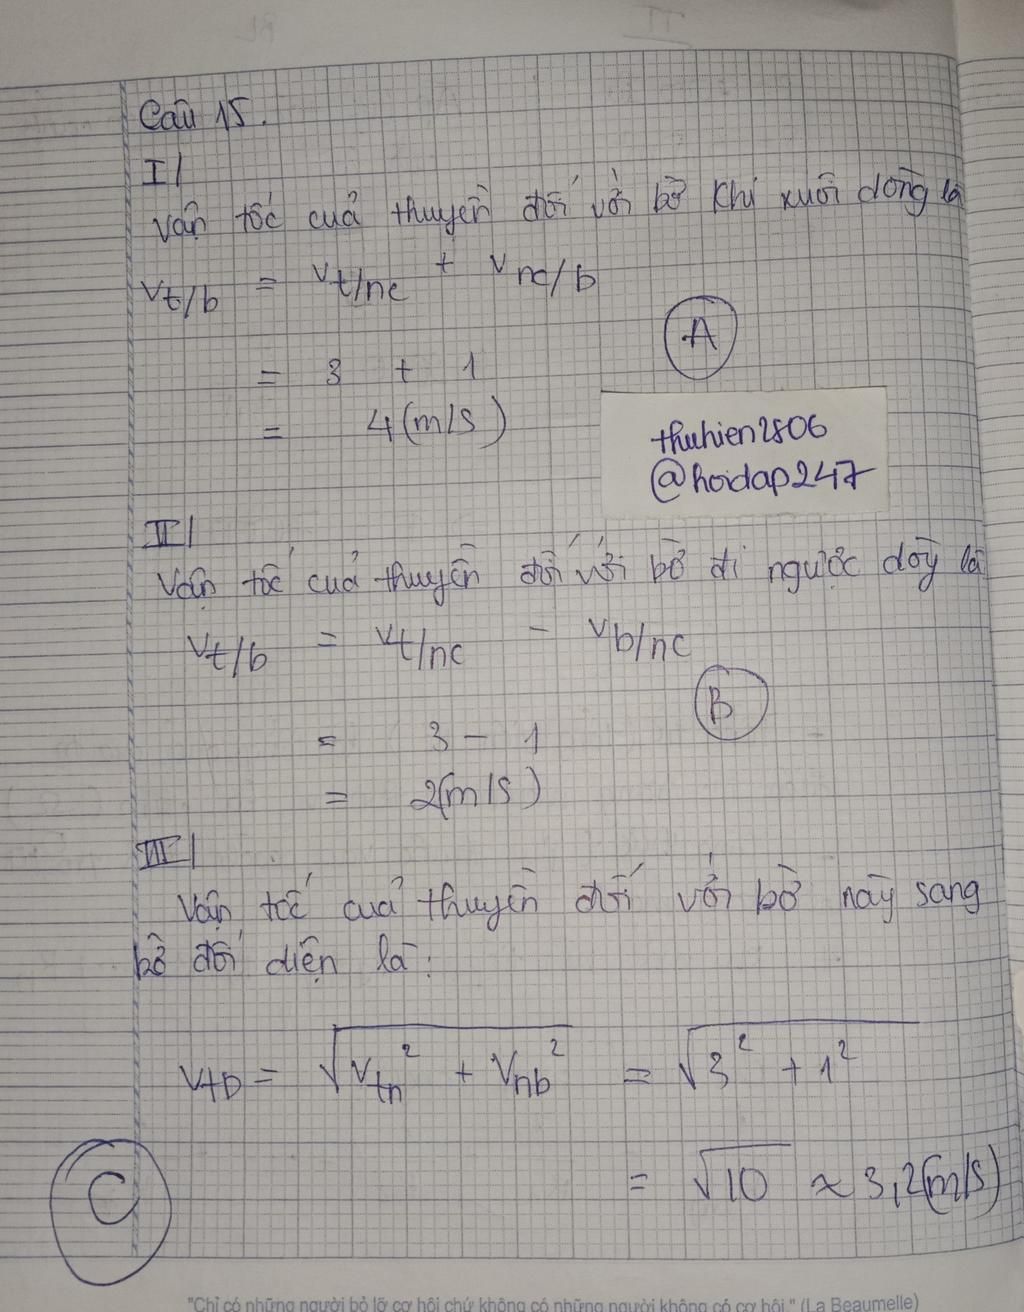 Câu 15.
I/
Vận tốc của thuyền đối với bờ khi xuôi dòng là
Vt/b = Vt/nc + Vnc/b
= 3 + 1
= 4(m/s)
A
thuhien2806
@hoidap247
II/
Vận tốc của thuyền đối với bờ đi ngược dòg là
Vt/b = Vt/nc - Vb/nc
B
= 3 - 1
= 2(m/s)
III/
Vận tốc của thuyền đối với bờ này sang
bờ đối diện là:
Vtb = √Vtn² + Vnb² = √3² + 1²
= √10 ≈ 3,2(m/s)
C
"Chỉ có những người bỏ lỡ cơ hội chứ không có những người không có cơ hội." (La Beaumelle)